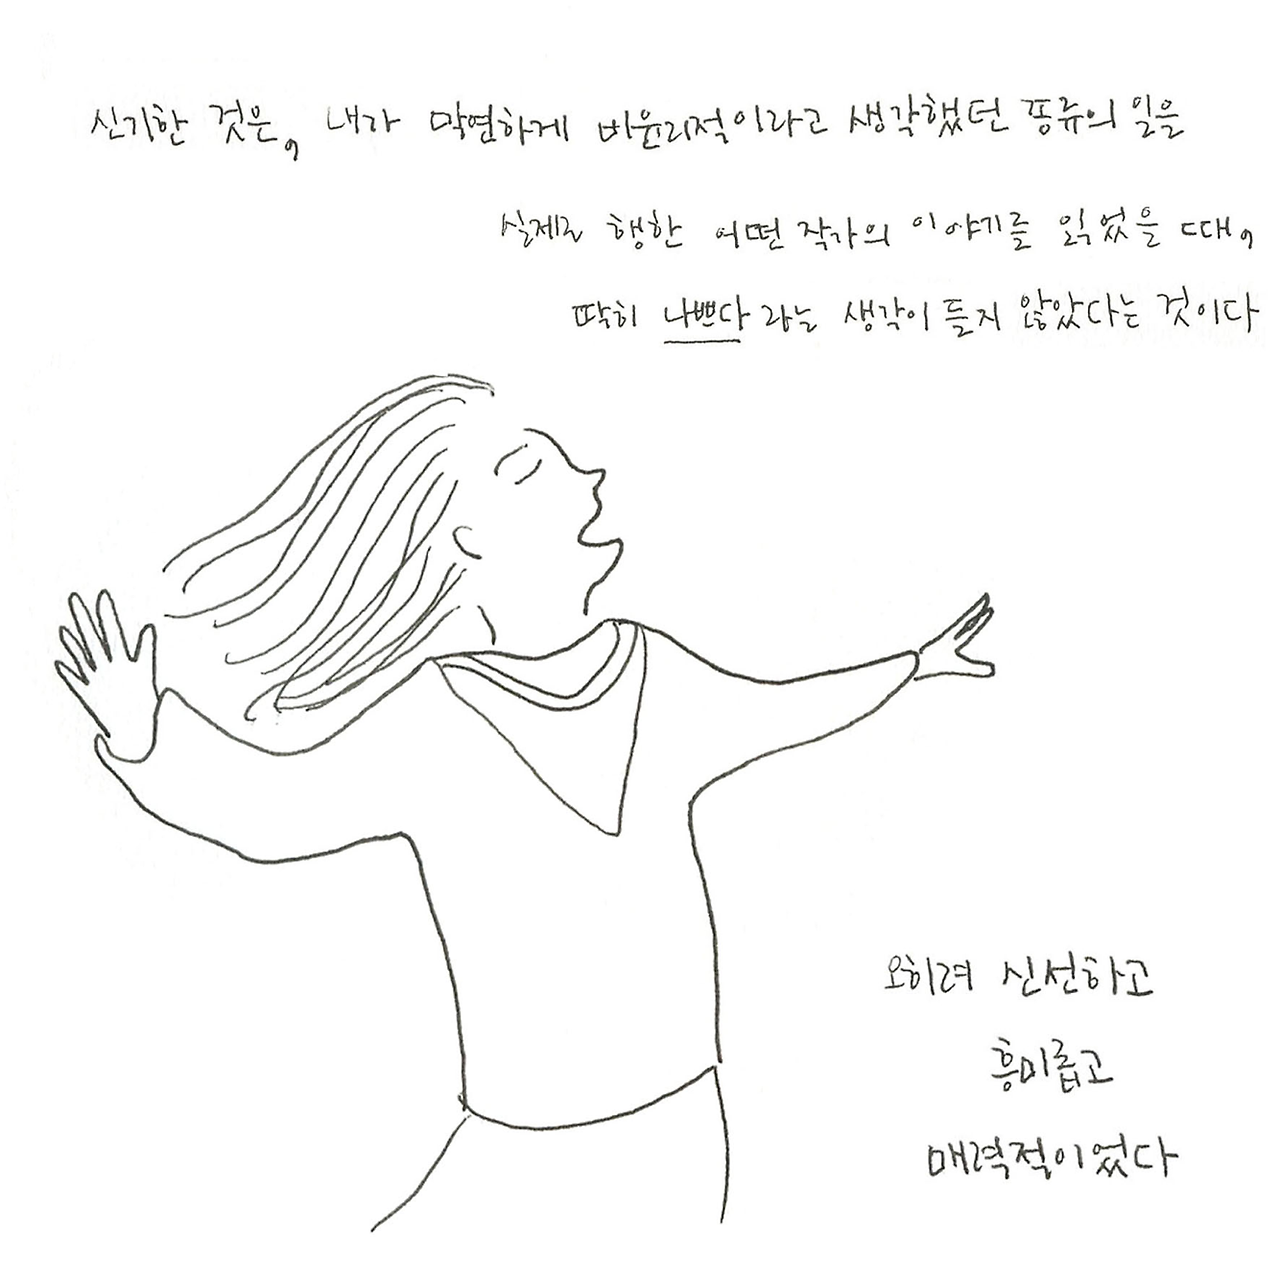 신기한 것은, 내가 막연하게 비윤리적이라고 생각했던 종류의 일을
실제로 행한 어떤 작가의 이야기를 읽었을 때,
딱히 나쁘다 라는 생각이 들지 않았다는 것이다
오히려 신선하고
흥미롭고
매력적이었다